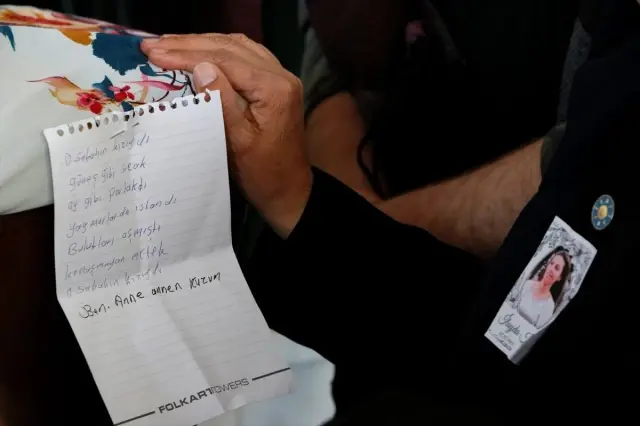 O sabahın kızıydı
güneş gibi sıcak
ay gibi parlaktı
Yağmurlarda ıslandı
Bulutları aşmıştı
artık
O sabahın kızıydı
Ben. Anne annen kuzum
FOLKART TOWERS